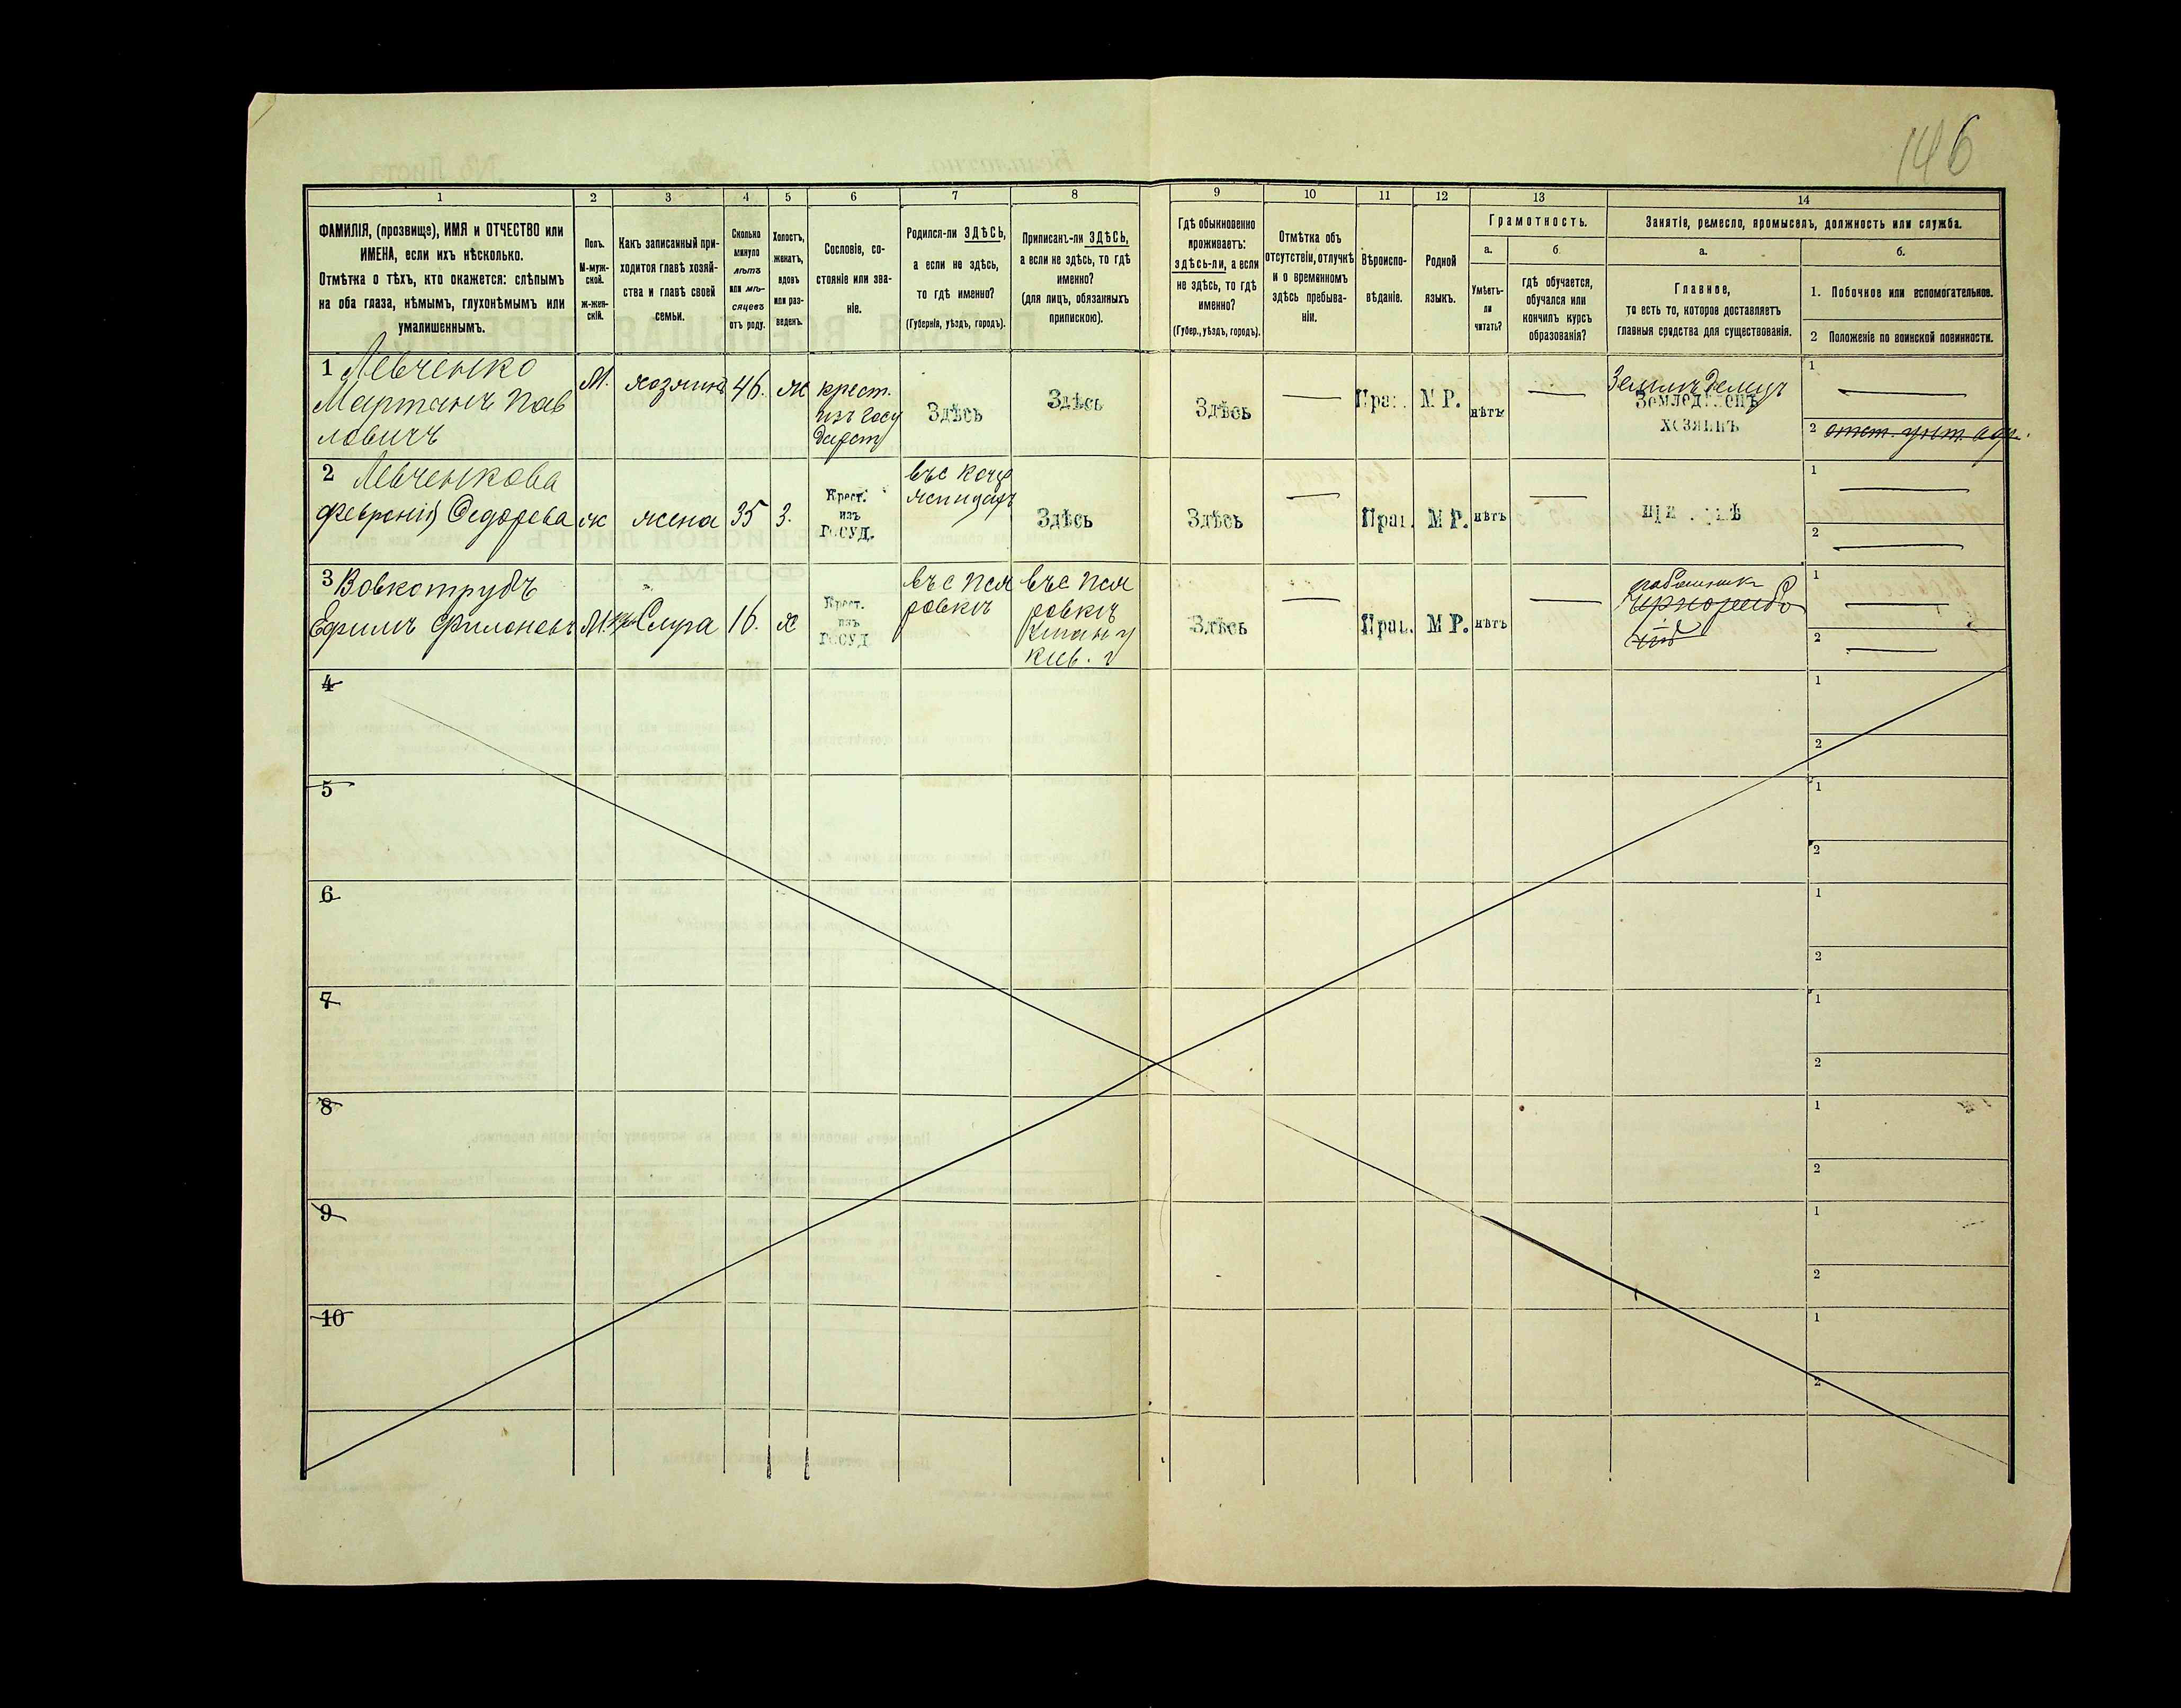 146
1 2 3 4 5 6 7 8 9 10 11 12 13 14
ФАМИЛІЯ, (прозвище), ИМЯ и ОТЧЕСТВО или
ИМЕНА, если ихъ нѣсколько.
Отмѣтка о тѣхъ, кто окажется: слѣпымъ
на оба глаза, нѣмымъ, глухонѣмымъ или
умалишеннымъ.
Полъ.
М-муж-
ской.
ж-жен-
скій.
Какъ записанный при-
ходится главѣ хозяй-
ства и главѣ своей
семьи.
Сколько
минуло
лѣтъ
или мѣ-
сяцевъ
отъ роду.
Холостъ,
женатъ,
вдовъ
или раз-
веденъ.
Сословіе, со-
стояніе или зва-
ніе.
Родился-ли ЗДѢСЬ,
а если не здѣсь,
то гдѣ именно?
(Губернія, уѣздъ, городъ).
Приписанъ-ли ЗДѢСЬ,
а если не здѣсь, то гдѣ
именно?
(для лицъ, обязанныхъ
припискою).
Гдѣ обыкновенно
проживаетъ:
здѣсь-ли, а если
не здѣсь, то гдѣ
именно?
(Губер., уѣздъ, городъ).
Отмѣтка объ
отсутствіи, отлучкѣ
и о временномъ
здѣсь пребыва-
ніи.
Вѣроиспо-
вѣданіе.
Родной
языкъ.
Грамотность.
а.
Умѣетъ-
ли
читать?
б.
гдѣ обучается,
обучался или
кончилъ курсъ
образованія?
Занятіе, ремесло, промыселъ, должность или служба.
а.
Главное,
то есть то, которое доставляетъ
главныя средства для существованія.
б.
1. Побочное или вспомогательное.
2 Положеніе по воинской повинности.
1 Левченко
Мартинъ Пав
ловичъ
М.
хозяинъ
46.
ж
крест.
изъ госу
дарст
Здѣсь
Здѣсь
Здѣсь
Пра.
М Р.
нѣтъ
Земледелецъ
Земледѣлецъ
хозяинъ
1
2
2 Левченкова
Феврония Федорева
ж
жена
35
З.
Крест.
изъ
Госуд.
Здѣсь
Здѣсь
Прав.
М Р.
нѣтъ
1
2
3 Вовкотрубъ
Ефимъ Филоновъ
М.
Слуга
16.
х
Крест.
изъ
Госуд
Здѣсь
Прав.
М Р.
нѣтъ
1
2
4
1
2
5
1
2
6
1
2
7
1
2
8
1
2
9
1
2
10
1
2